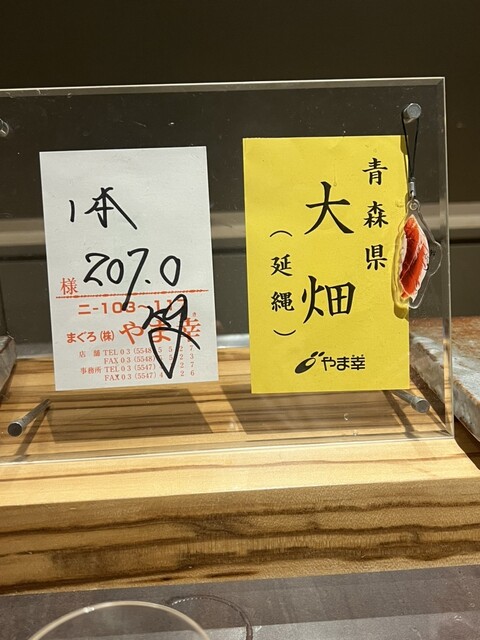 1本
207.0
様
ニ-103~1
まぐろ(株) やま幸
店舗 TEL 03 (5548)
FAX 03 (5548)
事務所 TEL 03 (5547)
FAX 03 (5547)
青森県
大畑
(延縄)
やま幸